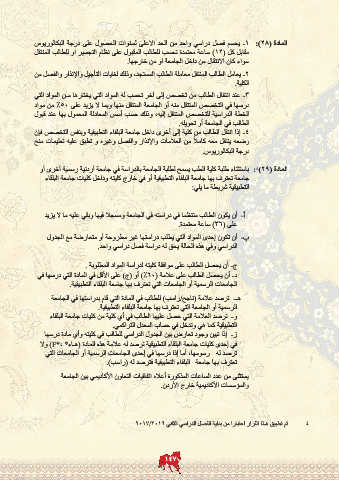 المادة (٢٨): ١. يحسم فصل دراسي واحد من الحد الاعلى لسنوات الحصول على درجة البكالوريوس
مقابل كل (١٢) ساعة معتمدة تحسب للطالب المقبول على نظام التجسير او للطالب المنتقل
سواء كان الانتقال من داخل الجامعة أو من خارجها.
٢. يعامل الطالب المنتقل معاملة الطالب المستجد، وذلك لغايات التأجيل والإنذار والفصل من
الكلية.
٣. عند انتقال الطالب من تخصص إلى آخر تحسب له المواد التي يختارها من المواد التي
درسها في التخصص المنتقل منه أو الجامعة المنتقل منها وبما لا يزيد على ٥٠٪ من مواد
الخطة الدراسية للتخصص المنتقل إليه، وذلك حسب أسس المعادلة المعمول بها عند قبول
الطالب في الجامعة أو تحويله.
٤. إذا انتقل الطالب من كلية إلى أخرى داخل جامعة البلقاء التطبيقية وبنفس التخصص فإن
وضعه ينقل معه كاملاً من العلامات والإنذار والفصل وغيره و تطبق عليه تعليمات منح
درجة البكالوريوس.
المادة (٢٩): باستثناء طلبة كلية الطب يسمح لطلبة الجامعة بالدراسة في جامعة أردنية رسمية أخرى أو
جامعة تعترف بها جامعة البلقاء التطبيقية أو في خارج كليته وداخل كليات جامعة البلقاء
التطبيقية شريطة ما يلي:
أ- أن يكون الطالب منتظما في دراسته في الجامعة ومسجلا فيها وبقي عليه ما لا يزيد
على (٣٦) ساعة معتمدة.
ب- أن تكون إحدى المواد التي يطلب دراستها غير مطروحة أو متعارضة مع الجدول
الدراسي وفي هذه الحالة يحق له دراسة فصل دراسي واحد.
ج- أن يحصل الطالب على موافقة كليته لدراسة المواد المطلوبة.
د- أن يحصل الطالب على علامة (٦٠٪) أو (ج) على الأقل في المادة التي درسها في
الجامعات الرسمية أو الجامعات التي تعترف بها جامعة البلقاء التطبيقية.
هـ- ترصد علامة (ناجح/راسب) للطالب في المادة التي قام بدراستها في الجامعة
الرسمية أو الجامعة التي تعترف بها جامعة البلقاء التطبيقية.
و- ترصد العلامة التي حصل عليها الطالب في أي كلية من كليات جامعة البلقاء
التطبيقية كما هي وتدخل في حساب المعدل التراكمي.
ز- إذا تبين وجود تعارض بين الجدول الدراسي للطالب في كليته وأي مادة درسها
في إحدى كليات جامعة البلقاء التطبيقية ترصد له علامة هذه المادة ولا
ترصد له رسومها، أما إذا درسها في إحدى الجامعات الرسمية أو الجامعات التي
تعترف بها جامعة البلقاء التطبيقية فترصد له (راسب).
يستثنى من عدد الساعات المذكورة أعلاه اتفاقيات التعاون الأكاديمي بين الجامعة
والمؤسسات الأكاديمية خارج الأردن.
٤ تم تطبيق هذا القرار اعتبارا من بداية الفصل الدراسي الثاني ٢٠١٧/٢٠١٦
١٤٧